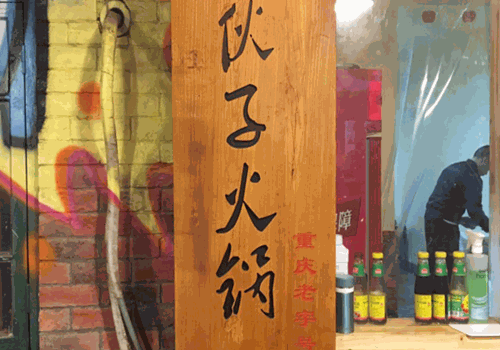 伙子火锅
重庆老字号
障